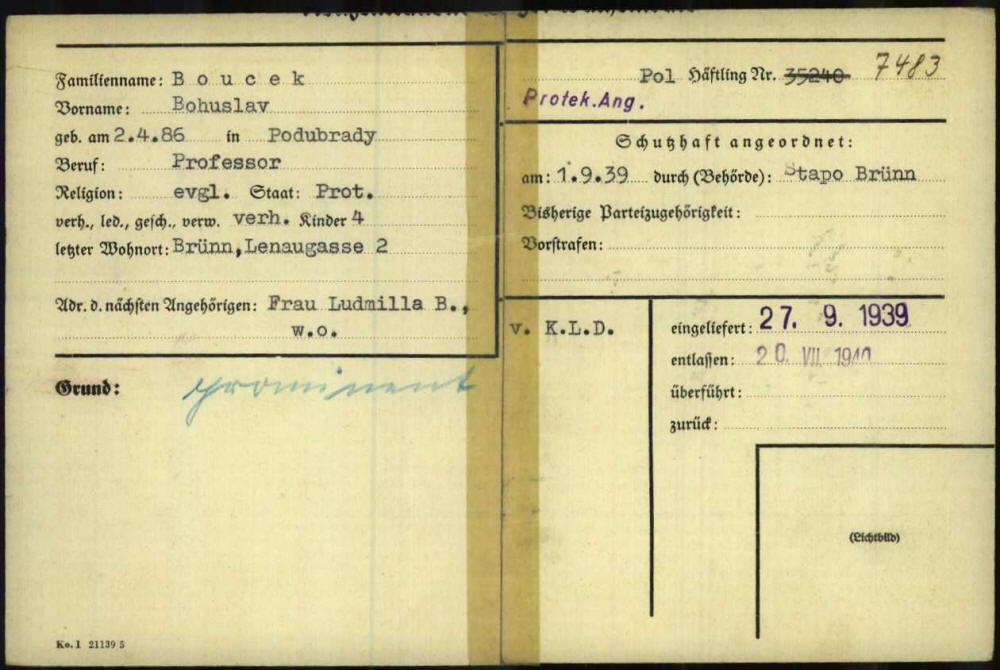 Familienname: Boucek
Vorname: Bohuslav
geb. am 2.4.86 in Podubrady
Beruf: Professor
Religion: evgl. Staat: Prot.
verh., led., gesch., verw. verh. Kinder 4
letzter Wohnort: Brünn, Lenaugasse 2
Adr. d. nächsten Angehörigen: Frau Ludmilla B.,
w.o.
Grund: prominent
Ko. I 21139 5
Pol Häftling Nr. 35240 7483
Protek. Ang.
Schutzhaft angeordnet:
am: 1.9.39 durch (Behörde): Stapo Brünn
Bisherige Parteizugehörigkeit:
Vorstrafen:
v. K.L.D.
eingeliefert: 27. 9. 1939
entlassen: 20. VII. 1940
überführt:
zurück:
(Lichtbild)